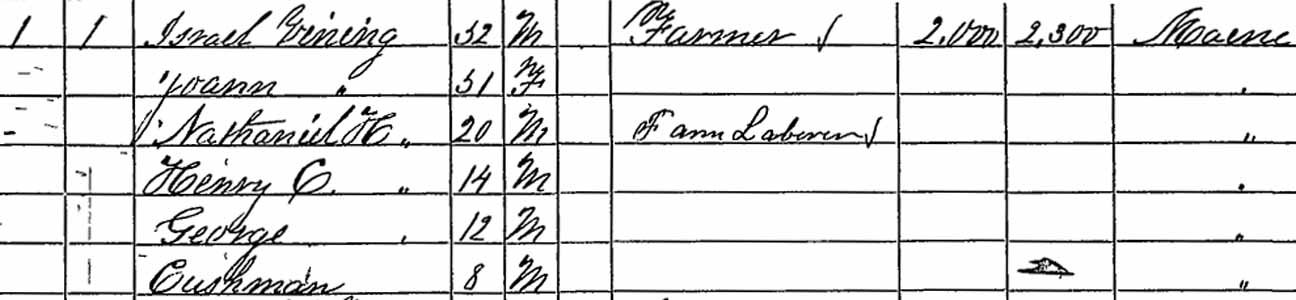 1 1 Israel Vining 52 M Farmer 2,000 2,300 Maene
Joann " 51 F "
Nathaniel H " 20 M Farm Laberer "
Henry C. " 14 M "
George " 12 M "
Cushman 8 M "